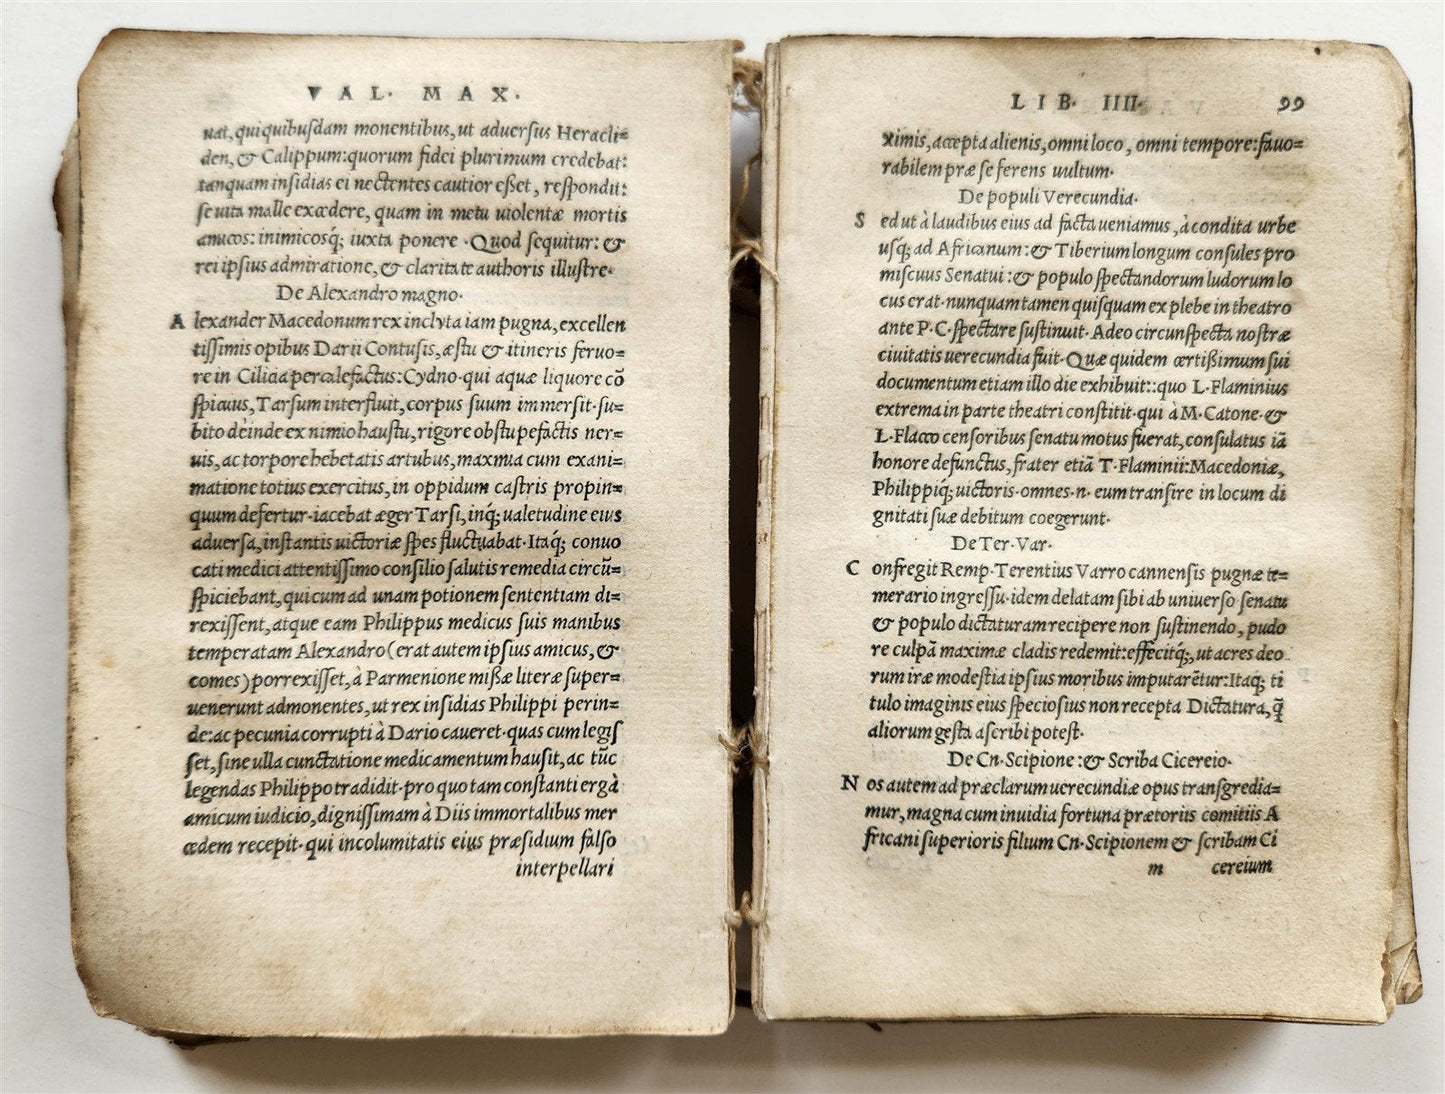 VAL· MAX·
uat, qui quibusdam monentibus, ut aduersus Heracli=
den, & Calippum: quorum fidei plurimum credebat:
tanquam insidias ei nectentes cautior esset, respondit:
se uita malle excedere, quam in metu uiolentæ mortis
amicos: inimicosq; iuxta ponere · Quod sequitur: &
rei ipsius admiratione, & claritate authoris illustre·
De Alexandro magno·
Alexander Macedonum rex inclyta iam pugna, excellen
tissimis opibus Darii Contusis, æstu & itineris feruo=
re in Cilicia percalefactus: Cydno· qui aquæ liquore cō
spicuus, Tarsum interfluit, corpus suum immersit· su=
bito deinde ex nimio haustu, rigore obstupefactis ner=
uis, ac torpore hebetatis artubus, maxima cum exani=
matione totius exercitus, in oppidum castris propin=
quum defertur· iacebat æger Tarsi, inq; ualetudine eius
aduersa, instantis uictoriæ spes fluctuabat· Itaq; conuo
cati medici attentissimo consilio salutis remedia circū=
spiciebant, qui cum ad unam potionem sententiam di=
rexissent, atque eam Philippus medicus suis manibus
temperatam Alexandro (erat autem ipsius amicus, &
comes) porrexisset, à Parmenione missæ literæ super=
uenerunt admonentes, ut rex insidias Philippi perin=
de: ac pecunia corrupti à Dario caueret· quas cum legis
set, sine ulla cunctatione medicamentum hausit, ac tūc
legendas Philippo tradidit· pro quo tam constanti ergà
amicum iudicio, dignissimam à Diis immortalibus mer
cedem recepit· qui incolumitatis eius præsidium falso
interpellari
LIB· IIII· 99
ximis, accepta alienis, omni loco, omni tempore: fauo=
rabilem præ se ferens uultum·
De populi Verecundia·
Sed ut à laudibus eius ad facta ueniamus, à condita urbe
usq; ad Africanum: & Tiberium longum consules pro
miscuus Senatui: & populo spectandorum ludorum lo
cus erat· nunquam tamen quisquam ex plebe in theatro
ante P·C· spectare sustinuit· Adeo circunspecta nostræ
ciuitatis uerecundia fuit· Quæ quidem certissimum sui
documentum etiam illo die exhibuit:: quo L·Flaminius
extrema in parte theatri constitit· qui à M·Catone· &
L·Flacco censoribus senatu motus fuerat, consulatus iā
honore defunctus, frater etiā T·Flaminii: Macedoniæ,
Philippiq; uictoris· omnes· n· eum transire in locum di
gnitati suæ debitum coegerunt·
De Ter·Var·
Confregit Remp· Terentius Varro cannensis pugnæ te=
merario ingressu· idem delatam sibi ab uniuerso senatu
& populo dictaturam recipere non sustinendo, pudo
re culpā maximæ cladis redemit: effecitq;, ut acres deo
rum iræ modestia ipsius moribus imputarētur: Itaq; ti
tulo imaginis eius speciosius non recepta Dictatura, q̄
aliorum gesta ascribi potest·
De Cn·Scipione: & Scriba Cicereio·
Nos autem ad præclarum uerecundiæ opus transgredia=
mur, magna cum inuidia fortuna prætoriis comitiis A
fricani superioris filium Cn·Scipionem & scribam Ci
m cereium